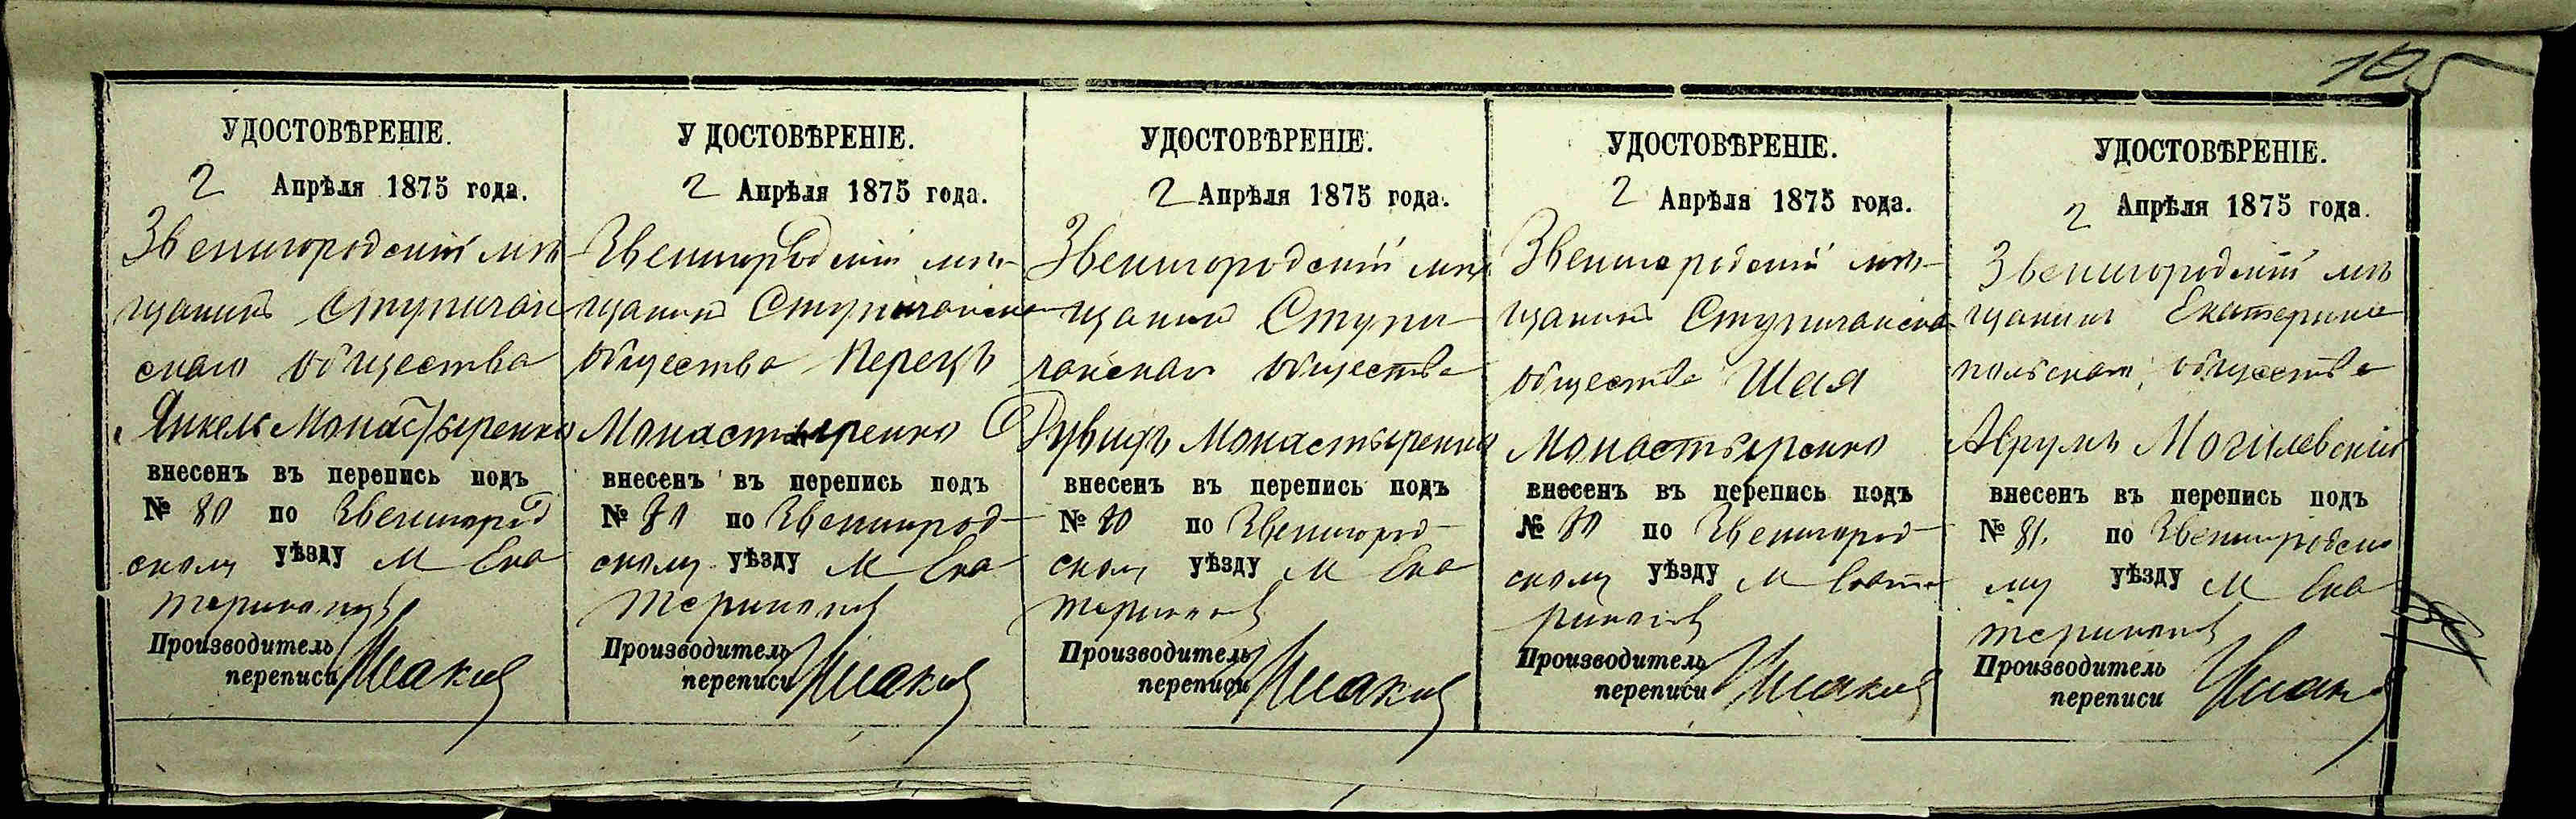 105
УДОСТОВѢРЕНІЕ.
2 Апрѣля 1875 года.
Звенигородскій мѣ
щанинъ Ступичан
скаго общества
Янкель Монастыренко
внесенъ въ перепись подъ
№ 80 по Звенигород
скому уѣзду М Ека
теринополь
Производитель
переписи
У ДОСТОВѢРЕНІЕ.
2 Апрѣля 1875 года.
Звенигородскій мѣ-
щанинъ Ступичанска
общества Перецъ
Монастыренко
внесенъ въ перепись подъ
№ 80 по Звенигород-
скому уѣзду М Ека
теринополь
Производитель
переписи
УДОСТОВѢРЕНІЕ.
2 Апрѣля 1875 года.
Звенигородскій мѣ
щанинъ Ступи
чанскаго общества
Дувидъ Монастыренко
внесенъ въ перепись подъ
№ 80 по Звенигород-
скому уѣзду М Ека
теринополь
Производитель
переписи
УДОСТОВѢРЕНІЕ.
2 Апрѣля 1875 года.
Звенигородскій мѣ-
щанинъ Ступичанска
общества Шая
Монастыренко
внесенъ въ перепись подъ
№ 80 по Звенигород-
скому уѣзду М Екате
ринополь
Производитель
переписи
УДОСТОВѢРЕНІЕ.
2 Апрѣля 1875 года.
Звенигородскій мѣ
щанинъ Екатерино
польскаго общества
Аврумъ Могилевскій
внесенъ въ перепись подъ
№ 81. по Звенигородско
му уѣзду М Ека
теринополь
Производитель
переписи